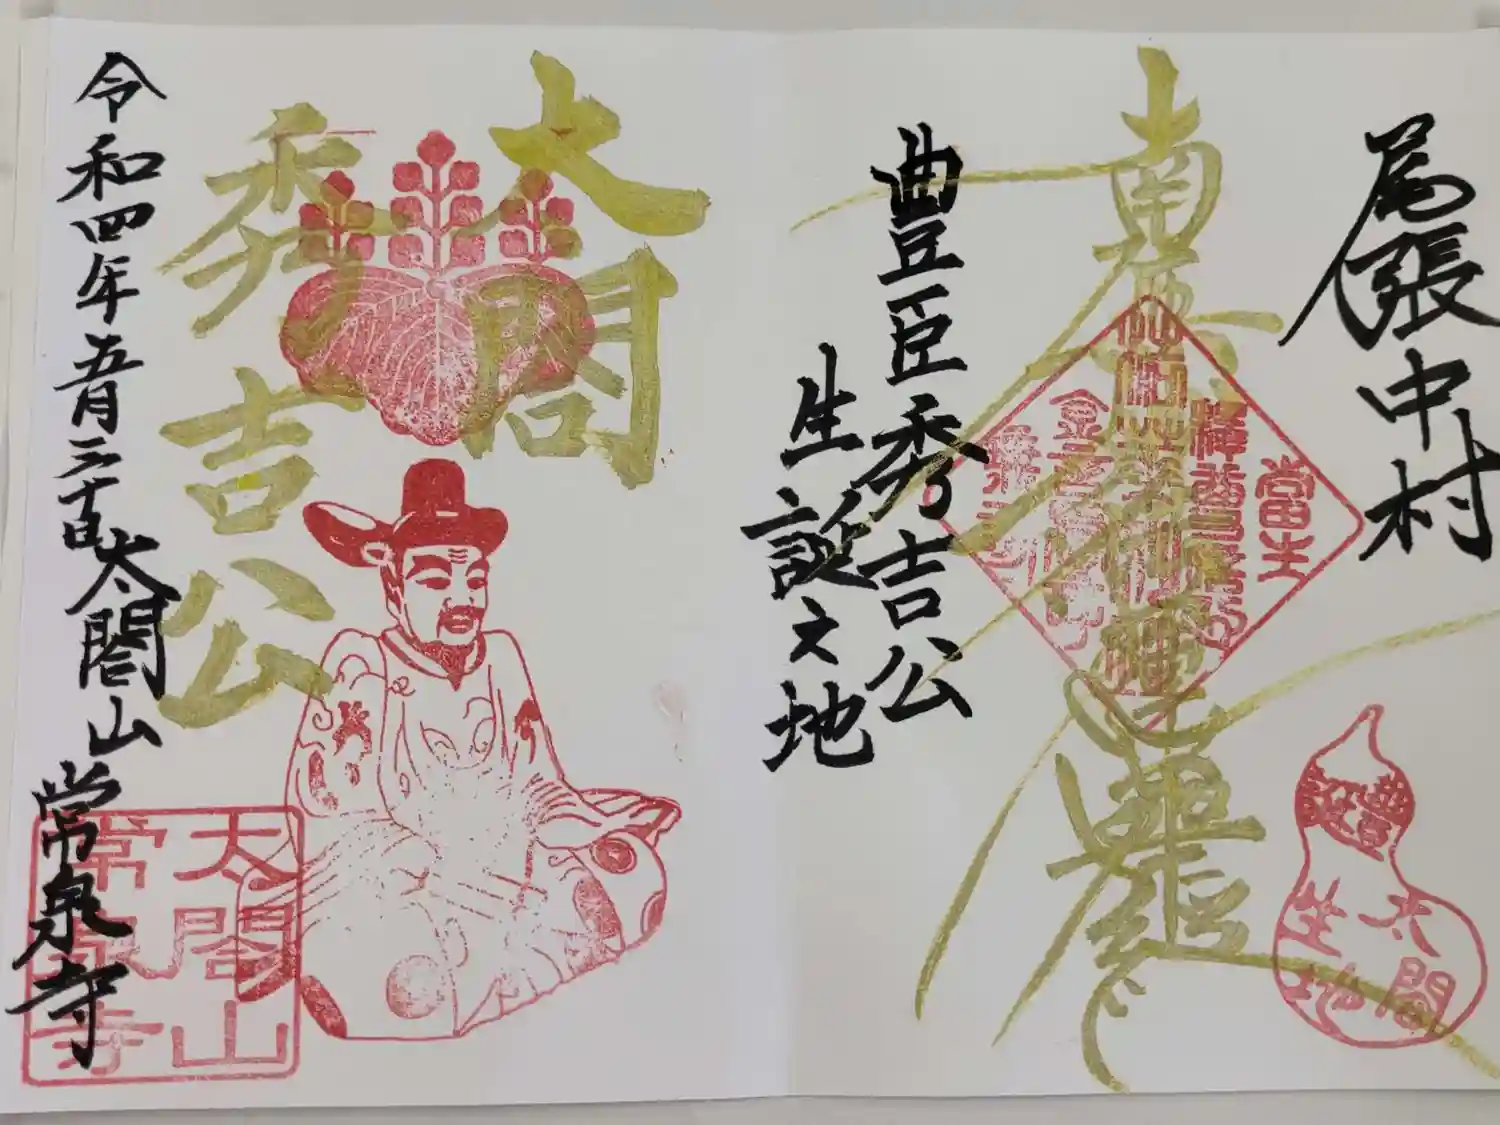 尾張中村
南無妙法蓮華経
豊臣秀吉公
生誕之地
當山
豊誕
太閤
生地
太閤
秀吉公
令和四年五月三十日
太閤山常泉寺
太閤山
常泉寺